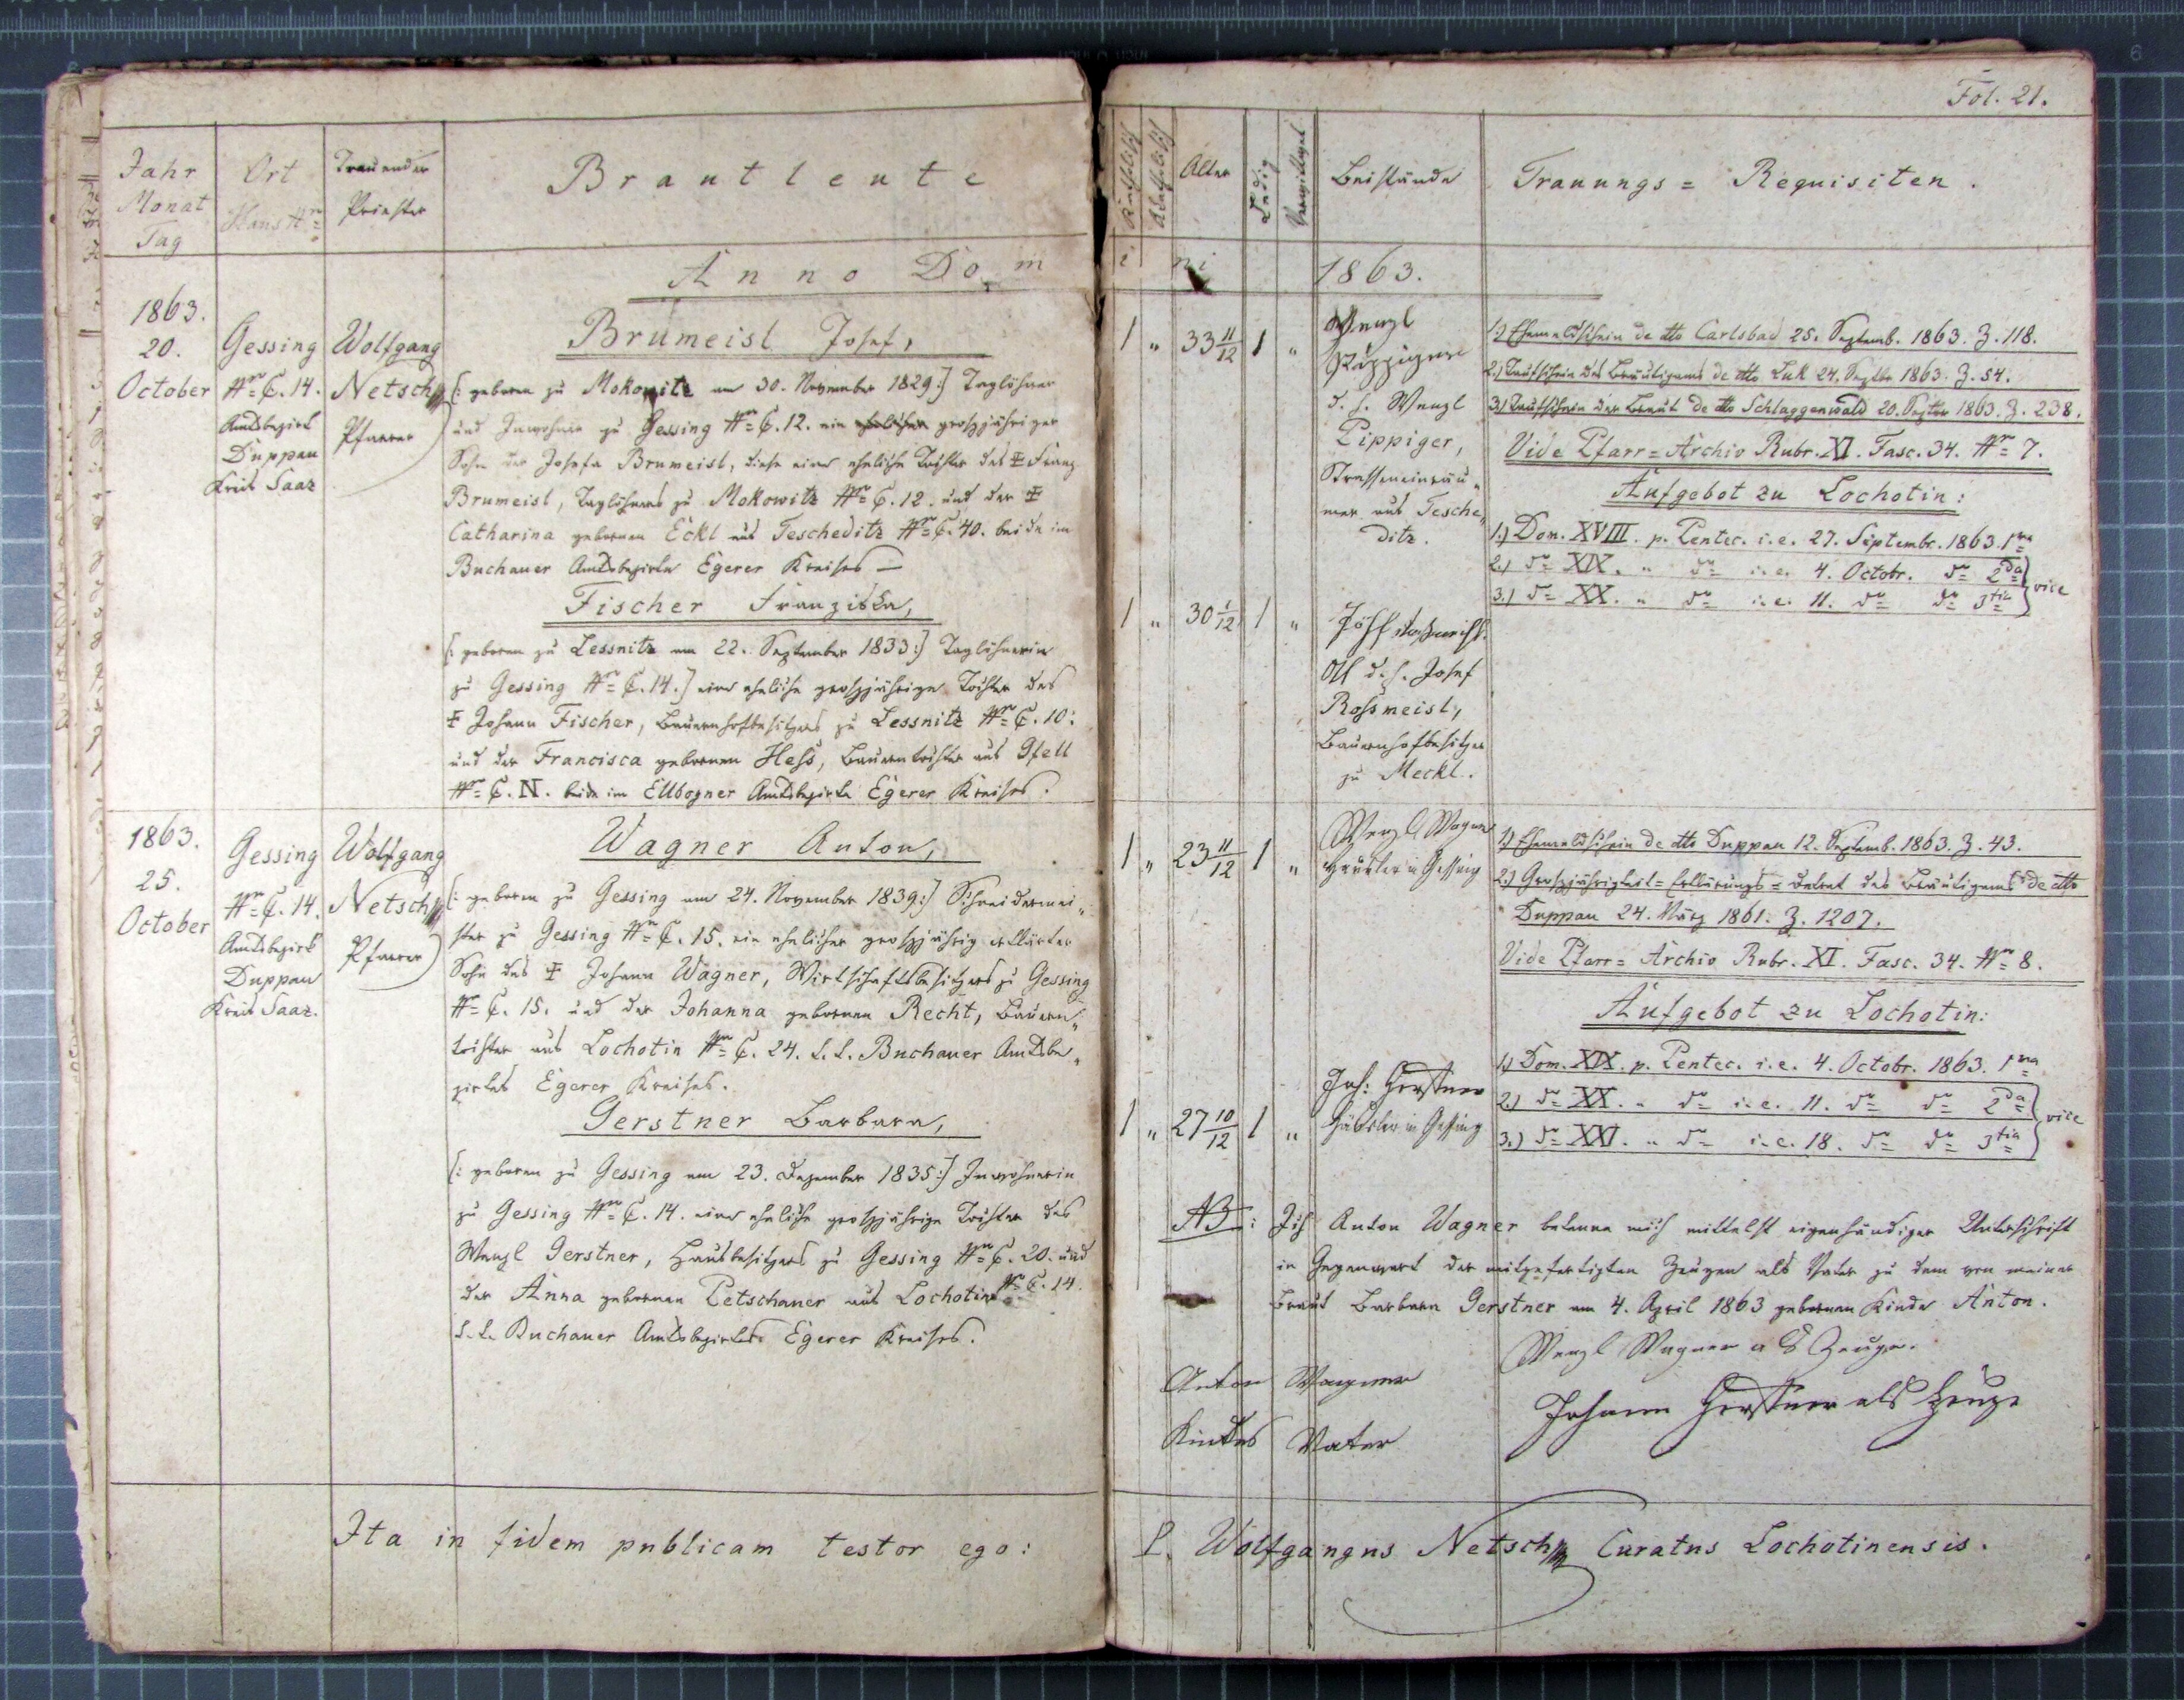 Fol. 21.
Jahr
Monat
Tag
Ort
Haus Nr.
Trauender
Priester
Brautleute
Katholisch
Akatholisch
Alter
Ledig
Verwittwet
Beistände
Trauungs = Requisiten.
Anno Domini 1863.
1863.
20.
October
Gessing
Nr. C. 14.
Amtsbezirk
Duppau
Kreis Saaz
Wolfgang
Netsch
Pfarrer
Brumeisl Josef,
[: geboren zu Mokowitz am 30. November 1829 :] Taglöhner
und Inwohner zu Gessing Nr. C. 12. ein ehelicher großjähriger
Sohn der Josefa Brumeisl, diese eine eheliche Tochter des ‡ Franz
Brumeisl, Taglöhners zu Mokowitz Nr. C. 12. und der ‡
Catharina gebornen Eckl aus Tescheditz Nr. C. 40. beide im
Buchauer Amtsbezirke Egerer Kreises —
Fischer Franziska,
[: geboren zu Lessnitz am 22. September 1833 :] Taglöhnerin
zu Gessing Nr. C. 14.] eine eheliche großjährige Tochter des
‡ Johann Fischer, Bauernhofbesitzers zu Lessnitz Nr. C. 10:
und der Francisca gebornen Heß, Bauerntochter aus Gfell
Nr. C. N. beide im Ellbogner Amtsbezirke Egerer Kreises.
1 „ 33 11/12 1 „
Wenzl
d. h. Wenzl
Pippiger,
Strasseneinräu„
mer aus Tesche„
ditz.
1 „ 30 1/12 1 „
Josef
d. h. Josef
Roßmeisl,
Bauernhofbesitzer
zu Meckl.
1.) Ehemeldschein de dto Carlsbad 25. Septemb. 1863. Z. 118.
2.) Taufschein des Bräutigams de dto Luk 24. Septbr 1863. Z. 54.
3.) Taufschein der Braut de dto Schlaggenwald 20. Septbr 1863. Z. 238.
Vide Pfarr = Archiv Rubr. XI. Fasc. 34. Nr. 7.
Aufgebot zu Lochotin:
1.) Dom. XVIII. p. Pentec. i.e. 27. Septembr. 1863. 1ma
2.) do XIX. „ do i.e. 4. Octobr. do 2da
3.) do XX. „ do i.e. 11. do do 3tia } vice
1863.
25.
October
Gessing
Nr. C. 14.
Amtsbezirk
Duppau
Kreis Saaz.
Wolfgang
Netsch
Pfarrer
Wagner Anton,
[: geboren zu Gessing am 24. November 1839 :] Schneidermei„
ster zu Gessing Nr. C. 15. ein ehelicher großjährig erklärter
Sohn des ‡ Johann Wagner, Wirtschaftsbesitzers zu Gessing
Nr. C. 15. und der Johanna gebornen Recht, Bauern„
tochter aus Lochotin Nr. C. 24. k. k. Buchauer Amtsbe„
zirkes Egerer Kreises.
Gerstner Barbara,
[: geboren zu Gessing am 23. Dezember 1835 :] Inwohnerin
zu Gessing Nr. C. 14. eine eheliche großjährige Tochter des
Wenzl Gerstner, Hausbesitzers zu Gessing Nr. C. 20. und
der Anna gebornen Petschauer aus Lochotin Nr. C. 14.
k. k. Buchauer Amtsbezirkes Egerer Kreises.
1 „ 23 11/12 1 „
Wenzl Wagner
Häusler in Gessing
1 „ 27 10/12 1 „
Joh: Gerstner
Häusler in Gessing
1.) Ehemeldschein de dto Duppau 12. Septemb. 1863. Z. 43.
2.) Großjährigkeit = Erklärungs = Dekret des Bräutigams de dto
Duppau 24. März 1861. Z. 1207.
Vide Pfarr = Archiv Rubr. XI. Fasc. 34. Nr. 8.
Aufgebot zu Lochotin:
1.) Dom. XIX. p. Pentec. i.e. 4. Octobr. 1863. 1ma
2.) do XX. „ do i.e. 11. do do 2da
3.) do XXI. „ do i.e. 18. do do 3tia } vice
NB: Ich Anton Wagner bekenne mich mittelst eigenhändiger Unterschrift
in Gegenwart der mitgefertigten Zeugen als Vater zu dem von meiner
Braut Barbara Gerstner am 4. April 1863 gebornen Kinde Anton.
Wenzl Wagner als Zeuge.
Anton Wagner
Kindes Vater
Johann Gerstner als Zeuge
Ita in fidem publicam testor ego:
P. Wolfgangus Netsch Curatus Lochotinensis.